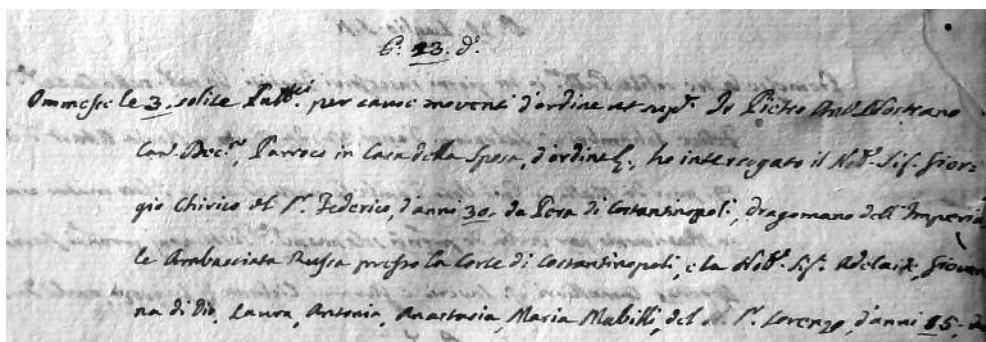 6. 23. d.o
Ommesse le 3. solite Pubb.ci per cause moventi d'ordine ut sup.a Io Pietro Ant.
Can. Dec.no, Parroco in Casa della Sposa, d'ordine ho interrogato il Nob. Sig. Gior=
gio Chirico del Sr. Federico, d'anni 30. da Pera di Costantinopoli, dragomano dell'Imperia
le Ambasciata Russa presso la Corte di Costantinopoli, e la Nob. Sig. Adelaide, Giovan
na di Dio, Laura, Antonia, Anastasia, Maria Mabilli, del Sr. Lorenzo, d'anni 15. da